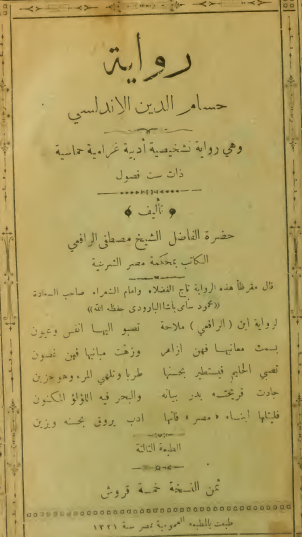 رواية
حسام الدين الاندلسي
وهي رواية تشخيصية أدبية غرامية حماسية
ذات ست فصول
تأليف
حضرة الفاضل الشيخ مصطفى الرافعي
الكاتب بمحكمة مصر الشرعية
قال مقرظاً هذه الرواية تاج الفضلاء وامام الشعراء صاحب السعادة
«محمود سامي باشا البارودي حفظه الله»
لرواية ابن (الرافعي) ملاحة تصبو اليها انفس وعيون
بسمت معانيها فهن ازاهر وزهت مبانيها فهن غصون
تصبي الحليم فيستطير بحسنها طربا وتلهي المرء وهو حزين
جادت قريحته بدر بيانه والبحر فيه اللؤلؤ المكنون
فليتلها ابناء «مصر» فانها ادب يروق بحسنه ويزين
الطبعة الثالثة
ثمن النسخة خمسة قروش
طبعت بالمطبعه العمومية بمصر سنة ١٣٢١